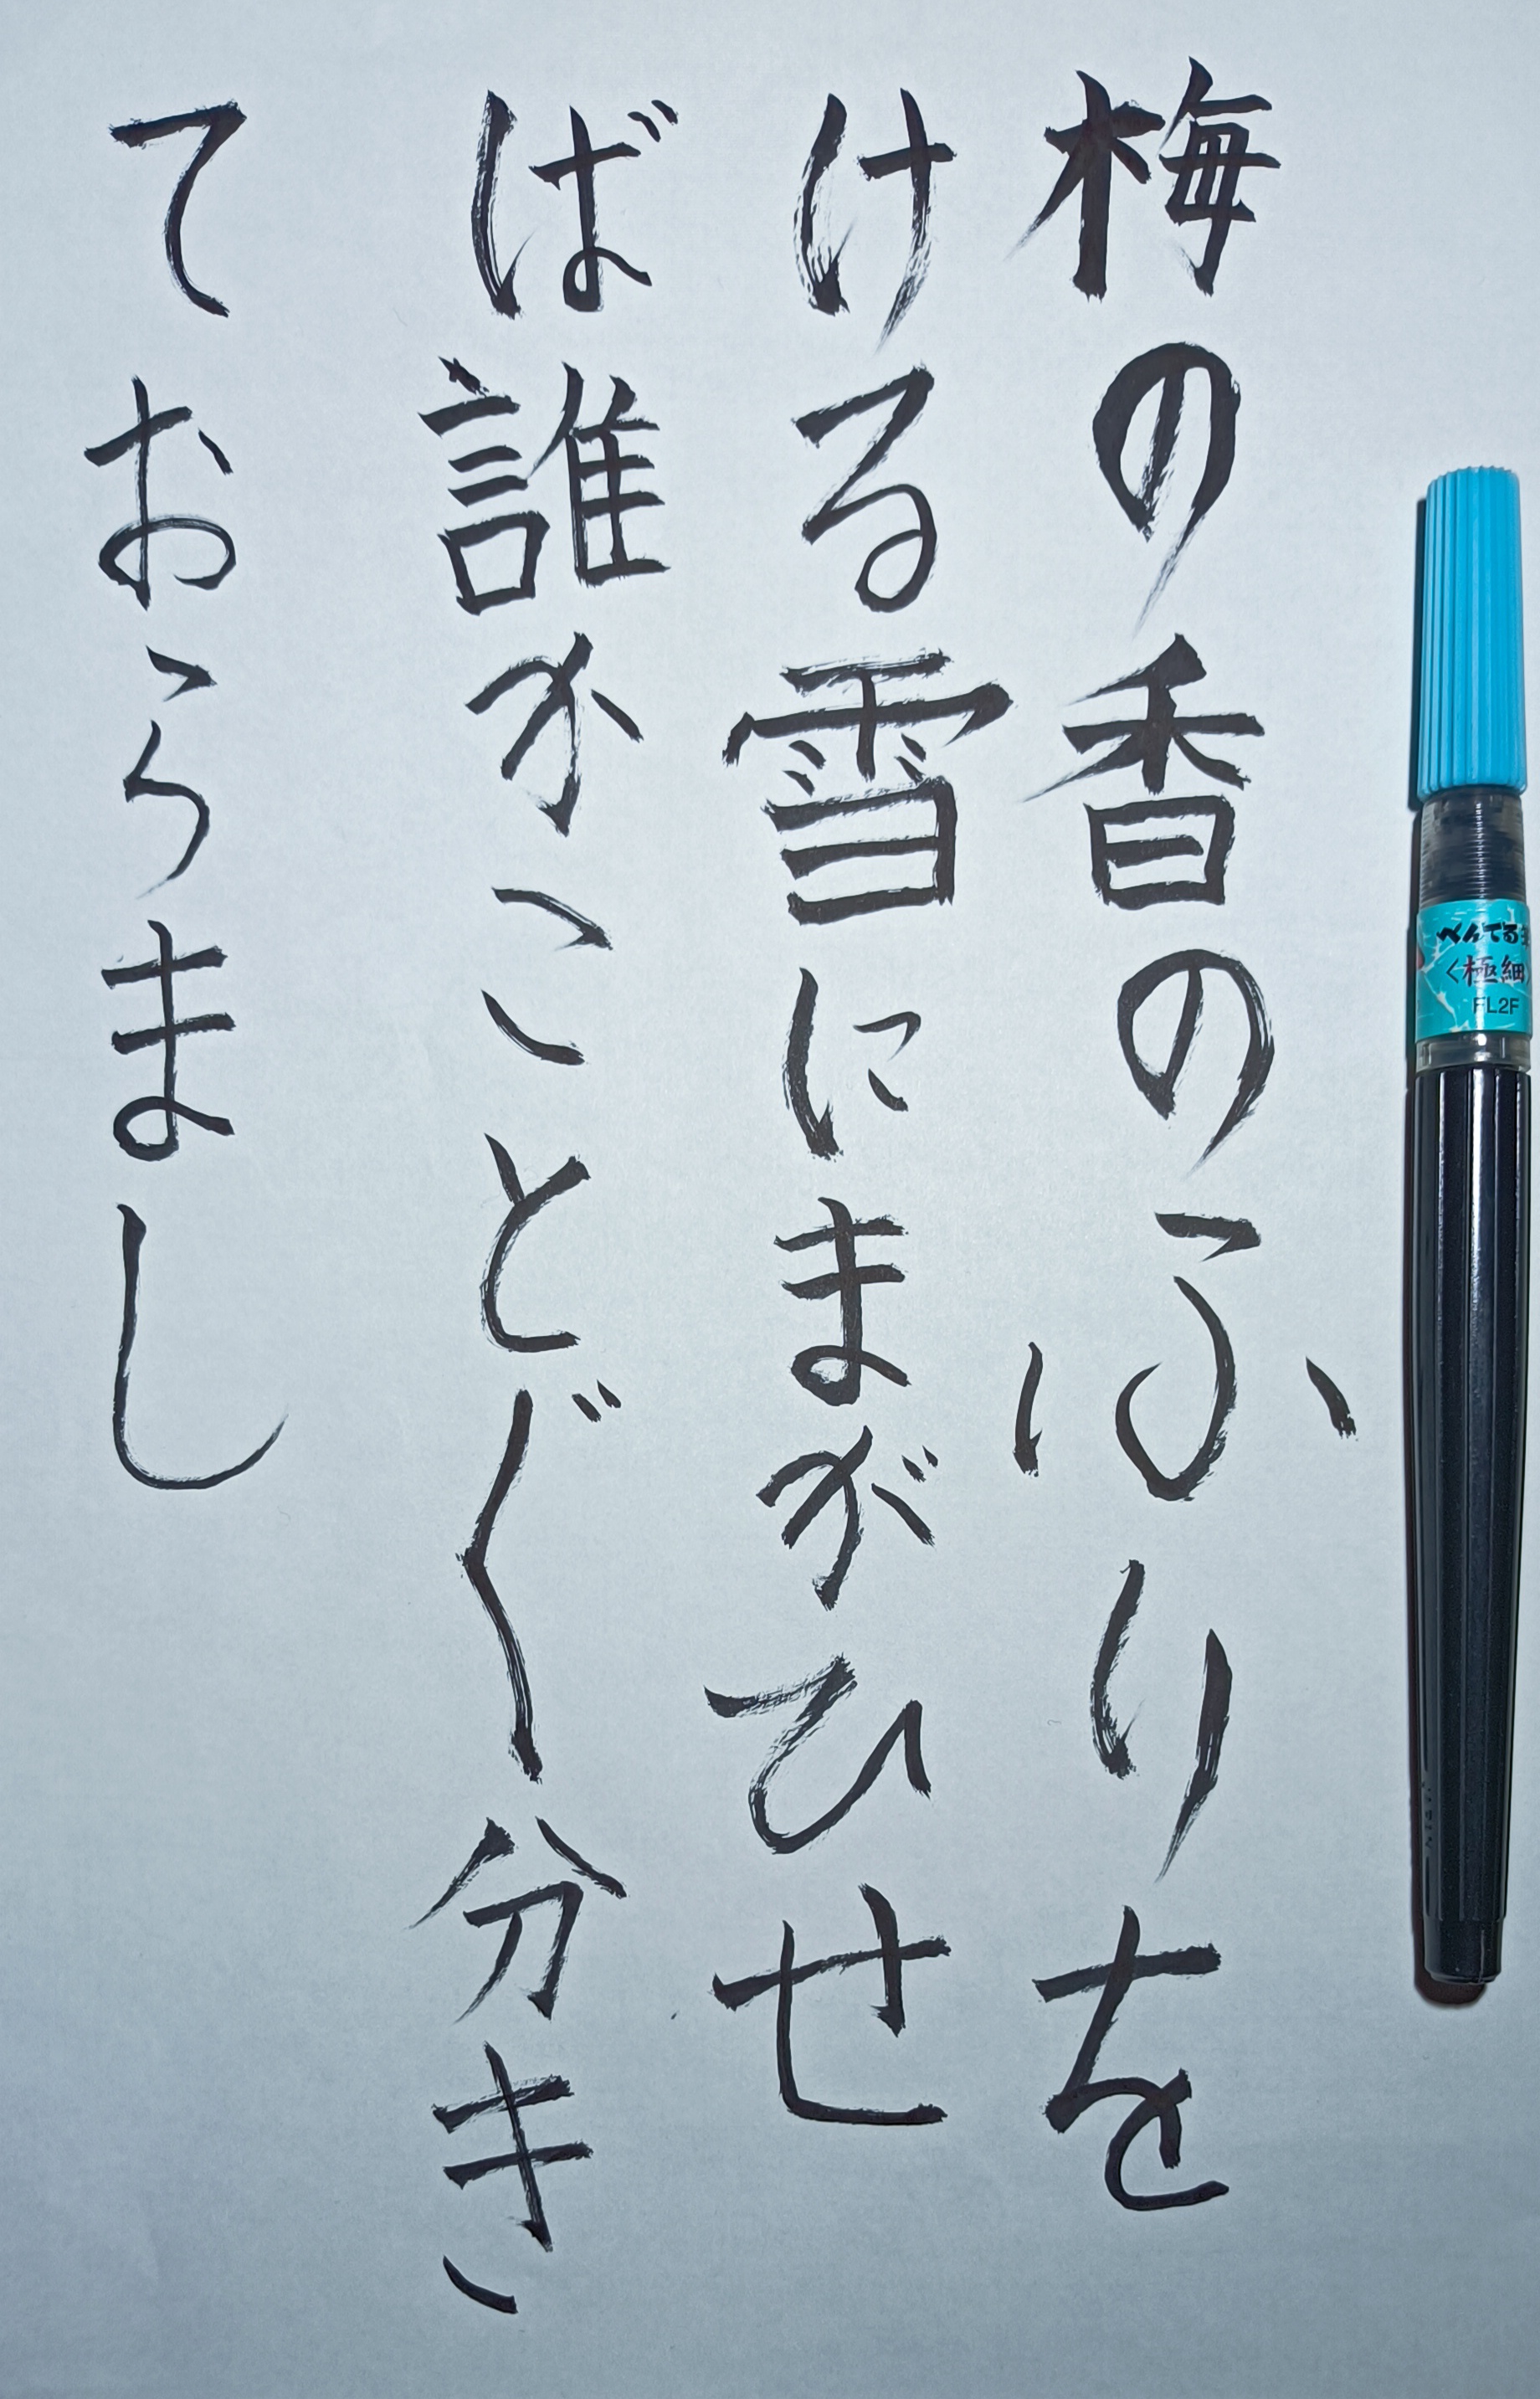 梅の香のふりを
ける雪にまがひせ
ば誰かこと〴〵分き
ておらまし
ぺんてる
〈極細〉
FL2F